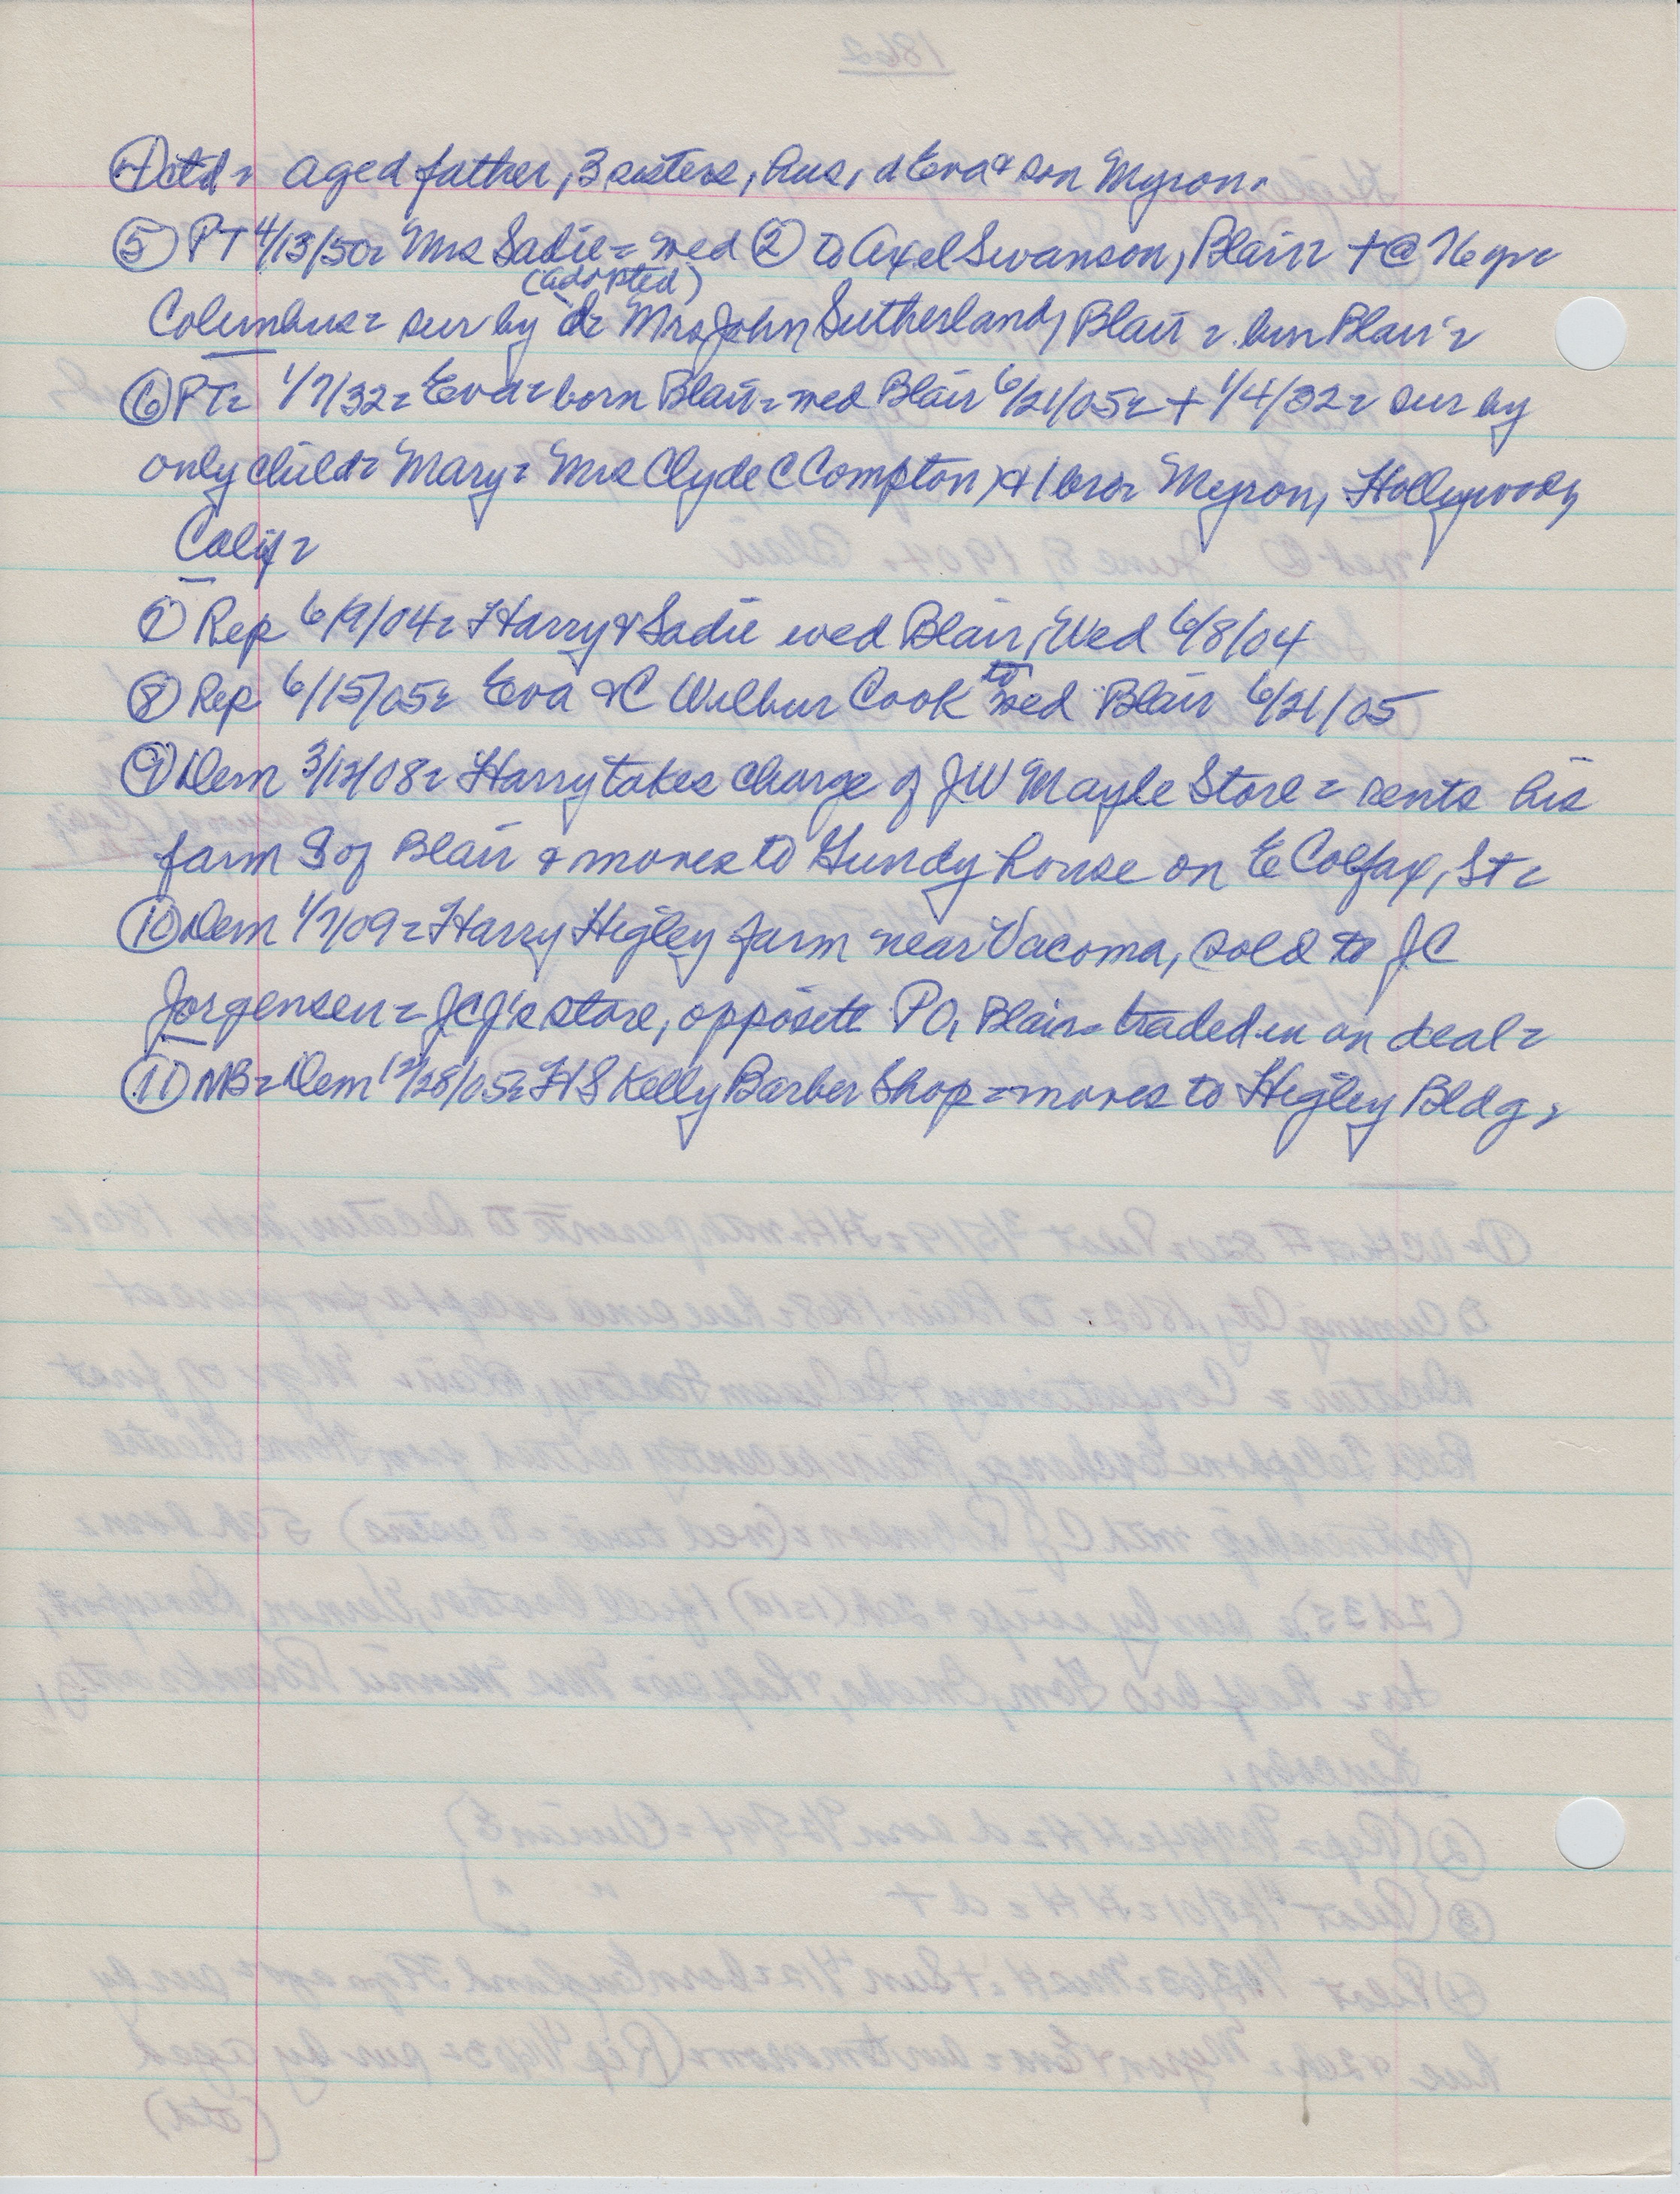 ④ctd = aged father, 3 sisters, hus, d Eva & son Myron.
⑤ PT 4/13/50 = Mrs Sadie = wed ② to Axel Swanson, Blair = + @ 76 yr =
(adopted)
Columbus = sur by d = Mrs John Sutherland, Blair = bur Blair =
⑥ PT = 1/7/32 = Eva = born Blair = wed Blair 6/21/05 = + 1/4/32 = sur by
only child = Mary = Mrs Clyde C Compton, & 1 bro = Myron, Hollywood,
Calif =
⑦ Rep 6/9/04 = Harry & Sadie wed Blair, Wed 6/8/04
⑧ Rep 6/15/05 = Eva & C Wilbur Cook to wed Blair 6/21/05
⑨ Dem 3/12/08 = Harry takes charge of JW Mayle Store = rents his
farm S of Blair & moves to Gundy house on E Colfax, St =
⑩ Dem 1/7/09 = Harry Higley farm near Vacoma, sold to JC
Jorgensen = JCJ's store, opposite PO, Blair = traded in on deal =
⑪ NB = Dem 12/28/05 = HS Kelly Barber Shop = moves to Higley Bldg =